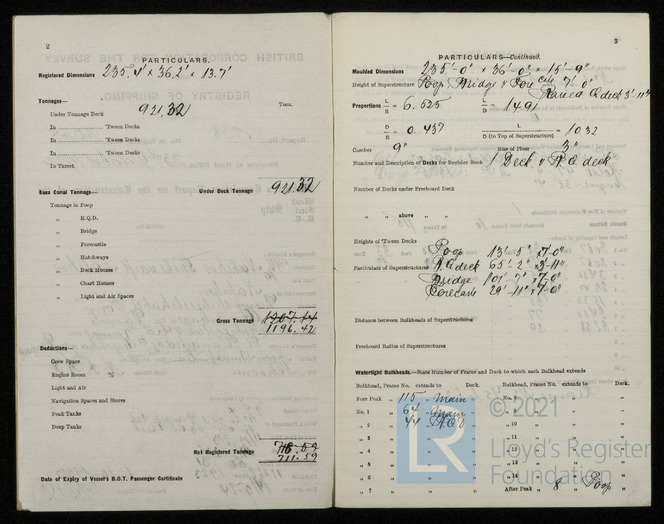 2
PARTICULARS.
Registered Dimensions 235.4' × 36.2' × 13.7'
Tonnages—
Tons.
Under Tonnage Deck 921.32
In 'Tween Decks
In 'Tween Decks
In 'Tween Decks
In Turret
Suez Canal Tonnage— Under Deck Tonnage 921.32
Tonnage in Poop
" R.Q.D.
" Bridge
" Forecastle
" Hatchways
" Deck Houses
" Chart Houses
" Light and Air Spaces
Gross Tonnage 1207.14
1196.42
Deductions—
Crew Space
Engine Room
Light and Air
Navigation Spaces and Stores
Peak Tanks
Deep Tanks
Net Registered Tonnage
711.59
Date of Expiry of Vessel's B.O.T. Passenger Certificate
3
PARTICULARS—Continued.
Moulded Dimensions 235'-0" × 36'-0" × 15'-9"
Height of Superstructure Poop Bridge & Fcle 7'-0"
Raised Q deck 3'-11"
Proportions L/B = 6.525 L/D = 14.91
D/B = 0.437 L/D (to Top of Superstructure) = 10.32
Camber 9" Rise of Floor 3"
Number and Description of Decks for Register Book 1 Deck & R.Q. deck
Number of Decks under Freeboard Deck
" " above "
Heights of 'Tween Decks
Poop 13'-5" × 7'-0"
Particulars of Superstructures R.Q deck 65'-2" × 3'-11"
Bridge × 7'-0"
Forecastle 29'-11" × 7'-0"
Distance between Bulkheads of Superstructures
Freeboard Ratios of Superstructures
Watertight Bulkheads.—State Number of Frame and Deck to which each Bulkhead extends
Bulkhead, Frame No. extends to Deck. Bulkhead, Frame No. extends to Deck.
Fore Peak 115 " Main No. 8 "
No. 1 64 " Main " 9
" 2 R.Q.D " 10
" 3 " 11
" 4 " 12
" 5 " 13
" 6 " 14
" 7 After Peak 8 " Poop
© 2021
LR
Lloyd's Register
Foundation